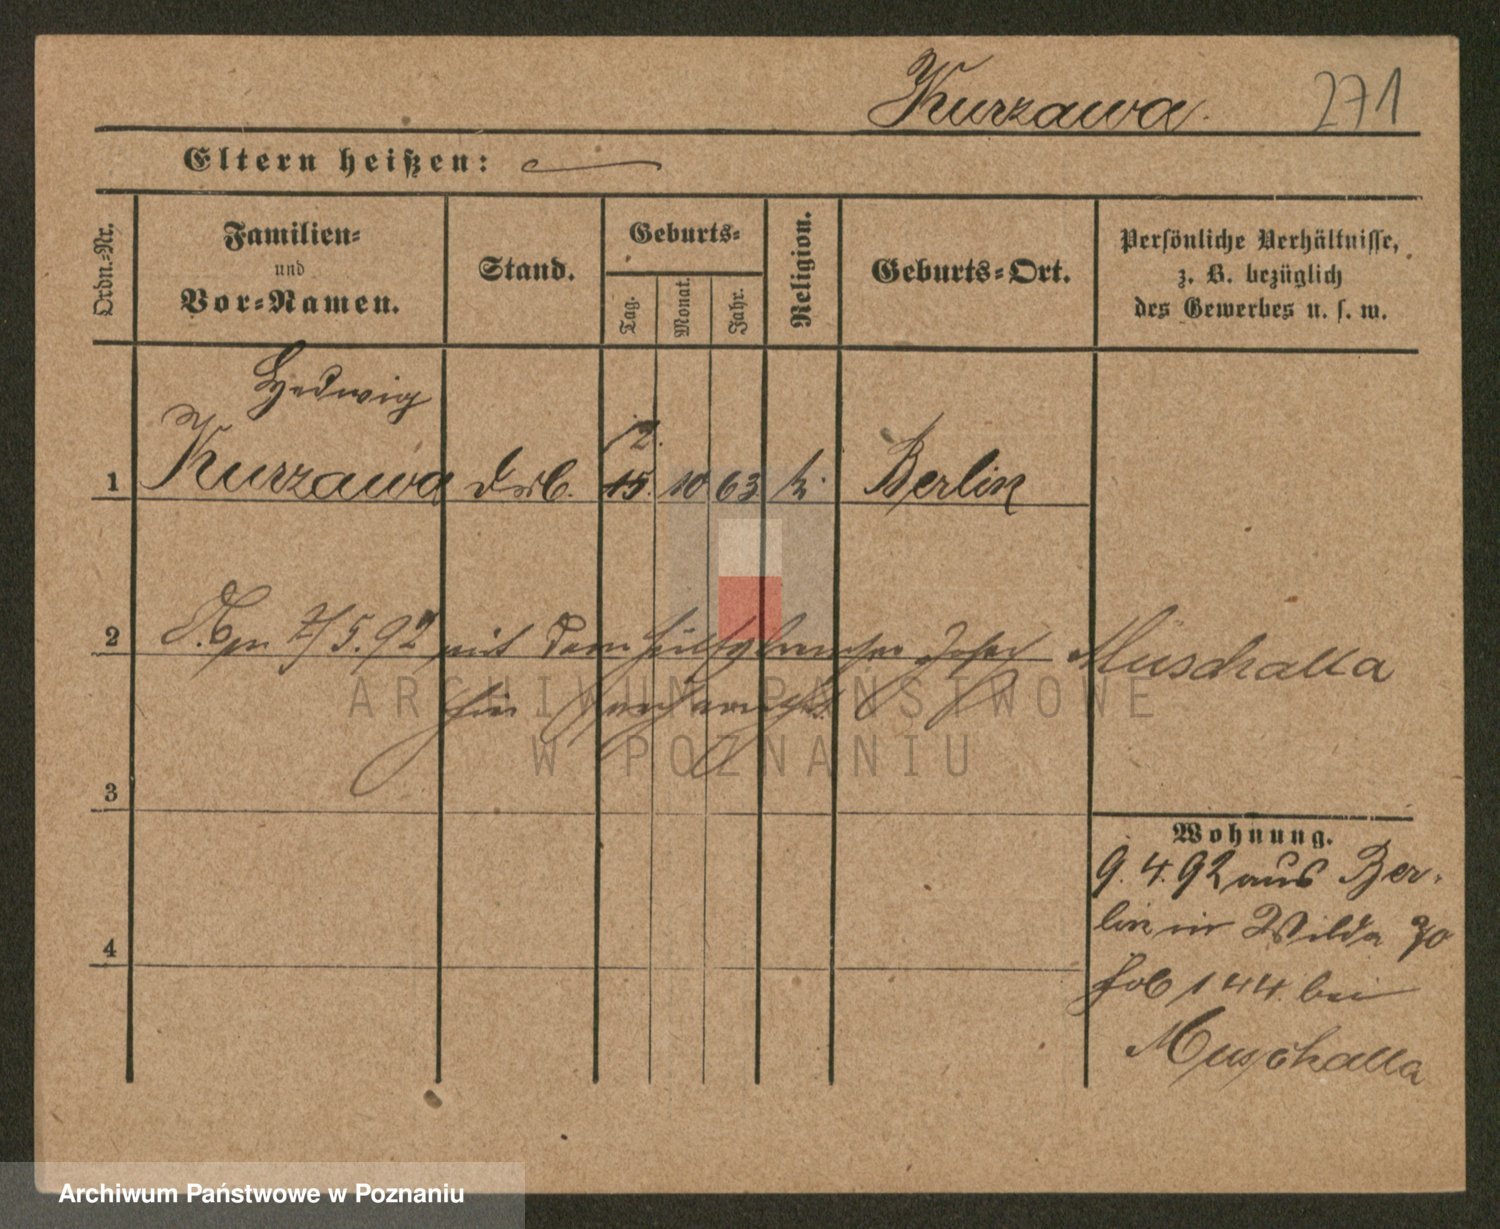 Kurzawa. 271
Eltern heißen:
Ordn.-Nr.
Familien-
und
Vor-Namen.
Stand.
Geburts-
Tag.
Monat.
Jahr.
Religion.
Geburts-Ort.
Persönliche Verhältnisse,
z. B. bezüglich
des Gewerbes u. s. w.
Hedwig
12.
1 Kurzawa 15. 10 63 k. Berlin
2 5.92 mit dem Josef Muschalla
hier
ARCHIWUM PAŃSTWOWE
W POZNANIU
3
Wohnung.
9. 4. 92 aus Ber-
lin in Wilda
4
144. bei
Muschalla
Archiwum Państwowe w Poznaniu